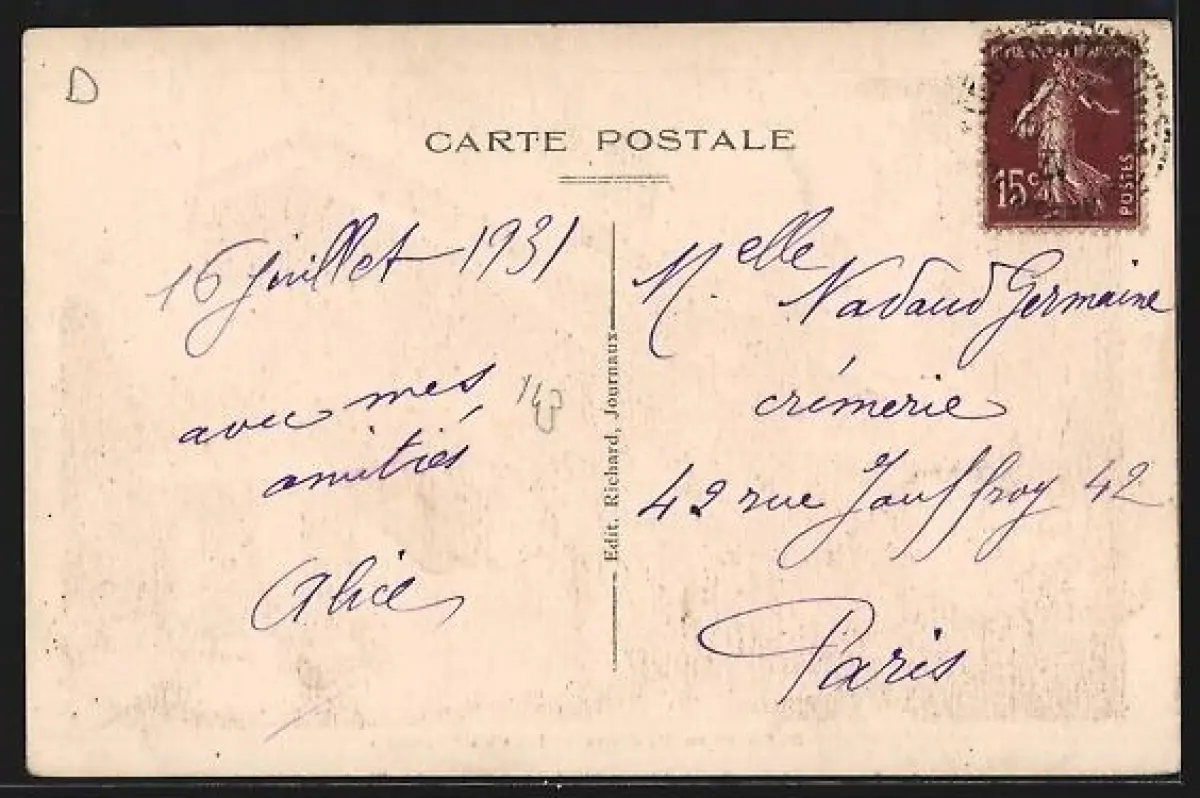 D
CARTE POSTALE
15c
POSTES
16 Juillet 1931
avec mes
amitiés
Alice
Edit. Richard, Journaux
Melle
Nadaud Germaine
crémerie
42 rue Jouffroy 42
Paris